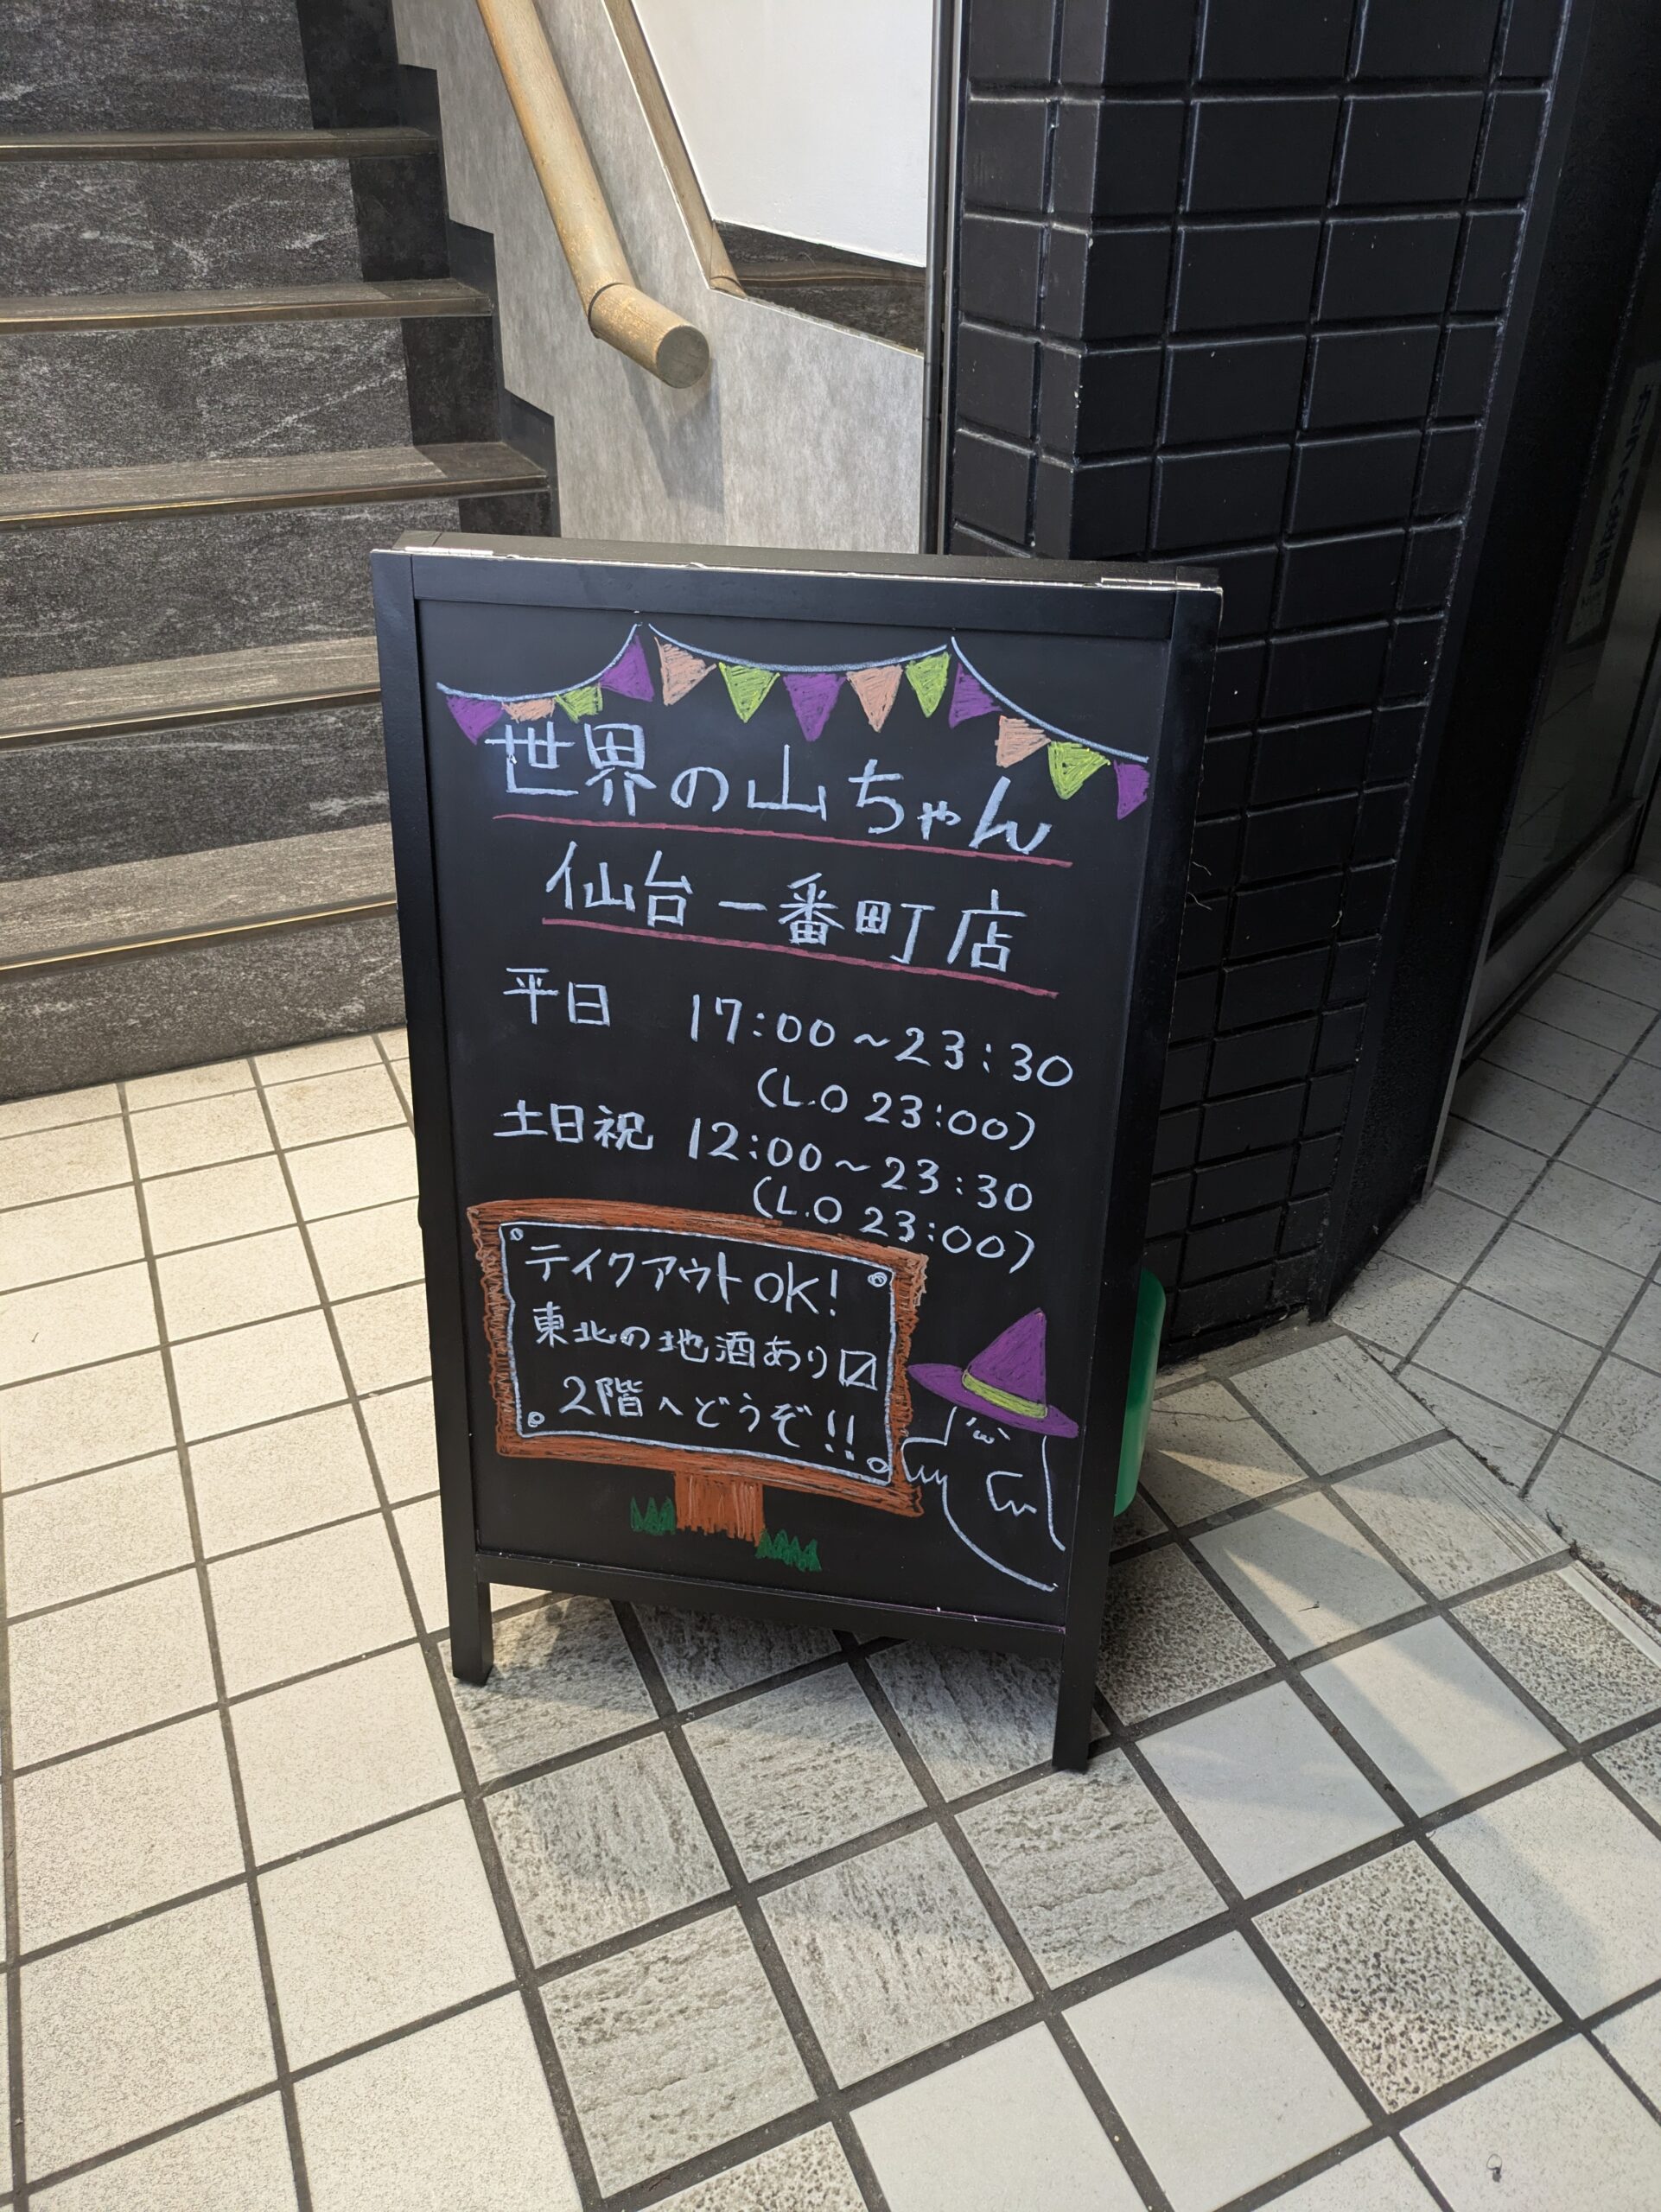 世界の山ちゃん
仙台一番町店
平日 17:00～23:30
(L.O 23:00)
土日祝 12:00～23:30
(L.O 23:00)
テイクアウトOK!
東北の地酒あり〼
2階へどうぞ!!